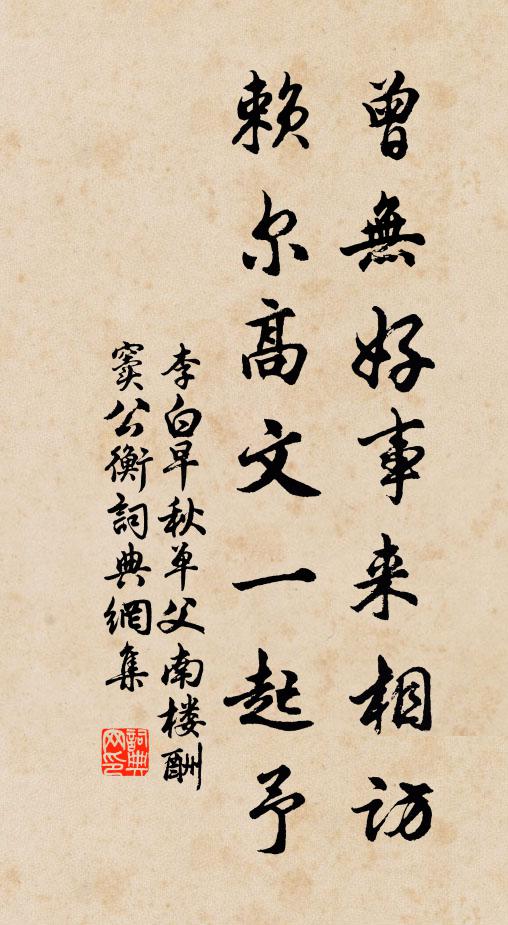 曾無好事来相訪
賴尔高文一起予
李白早秋单父南楼酬
竇公衡詞典網集
詞典
网印